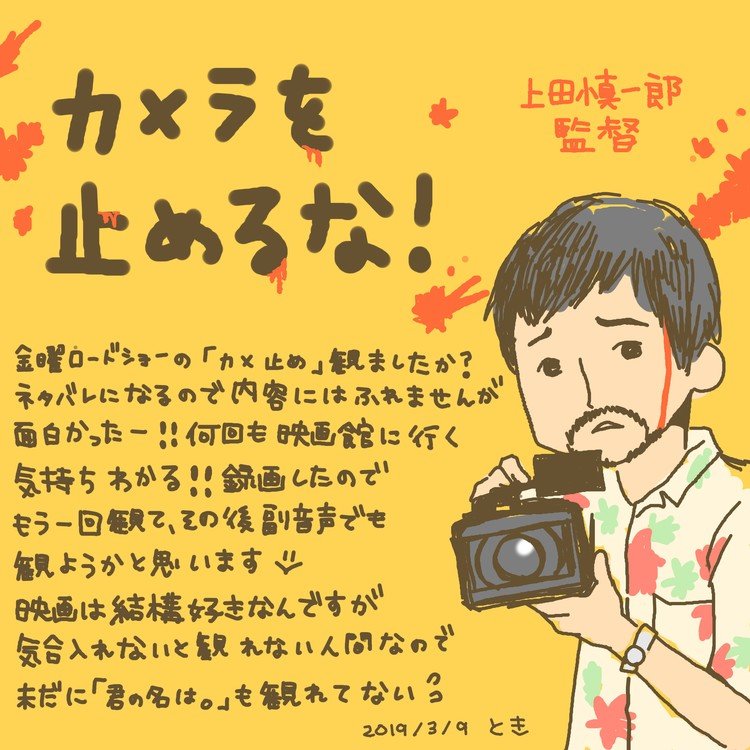 カメラを
止めるな!
上田慎一郎
監督
金曜ロードショーの「カメ止め」観ましたか?
ネタバレになるので内容にはふれませんが
面白かったー!!何回も映画館に行く
気持ちわかる!!録画したので
もう一回観て、その後副音声でも
観ようかと思います
映画は結構好きなんですが
気合入れないと観れない人間なので
未だに「君の名は。」も観れてない
2019/3/9 とき